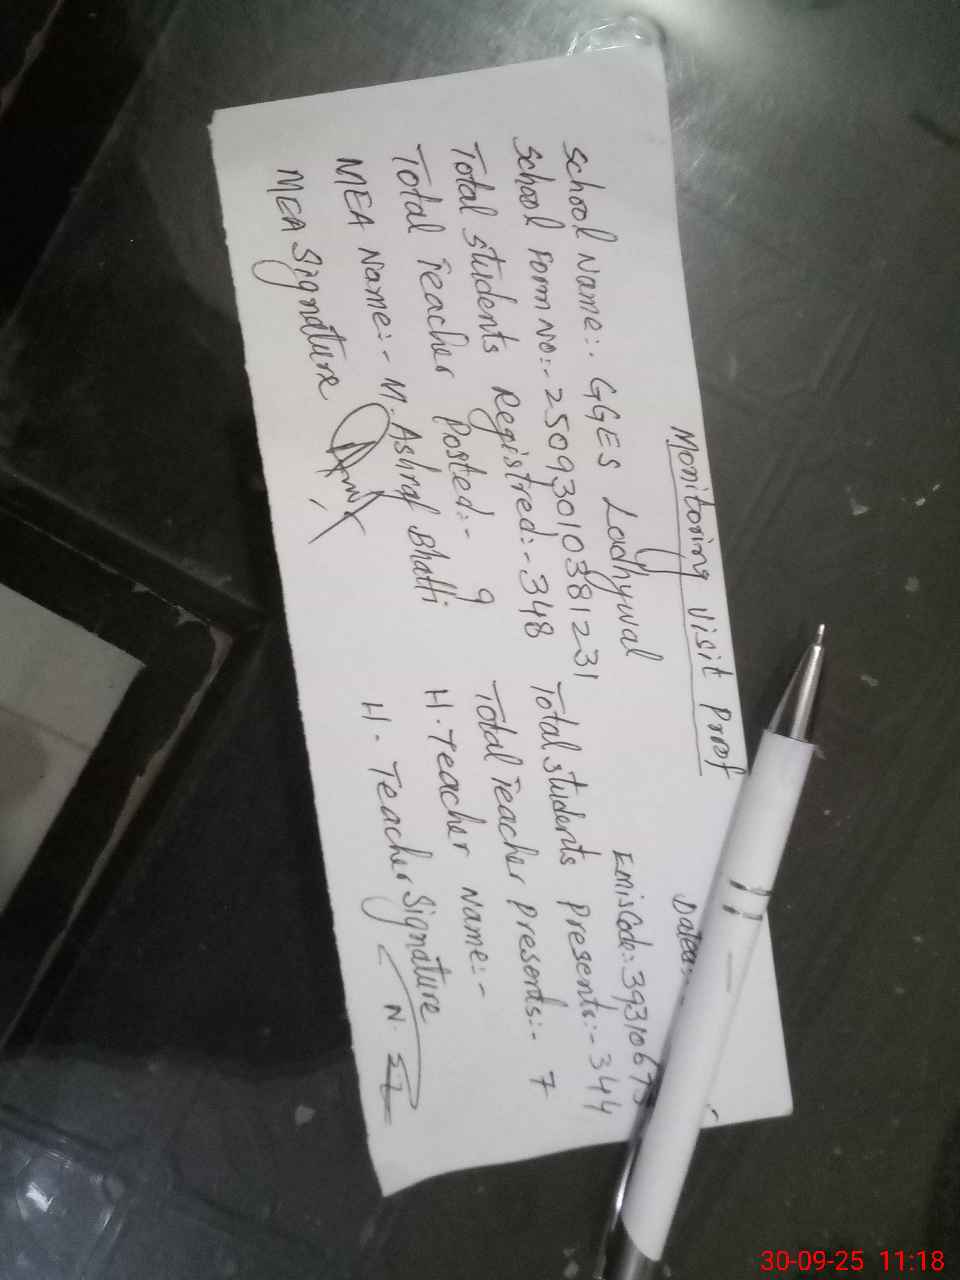 Monitoring Visit Prof
Dates:
School Name:- GGES Ladhywal
EmisCode:-3931067
School Form No:-25093010381231
Total Students Registred:-348 Total students presents:-344
Total Teacher Posted:- 9 Total Teacher presents:- 7
MEA Name:- M. Ashraf Bhatti H. Teacher Name:-
MEA Signature H. Teacher Signature
30-09-25 11:18